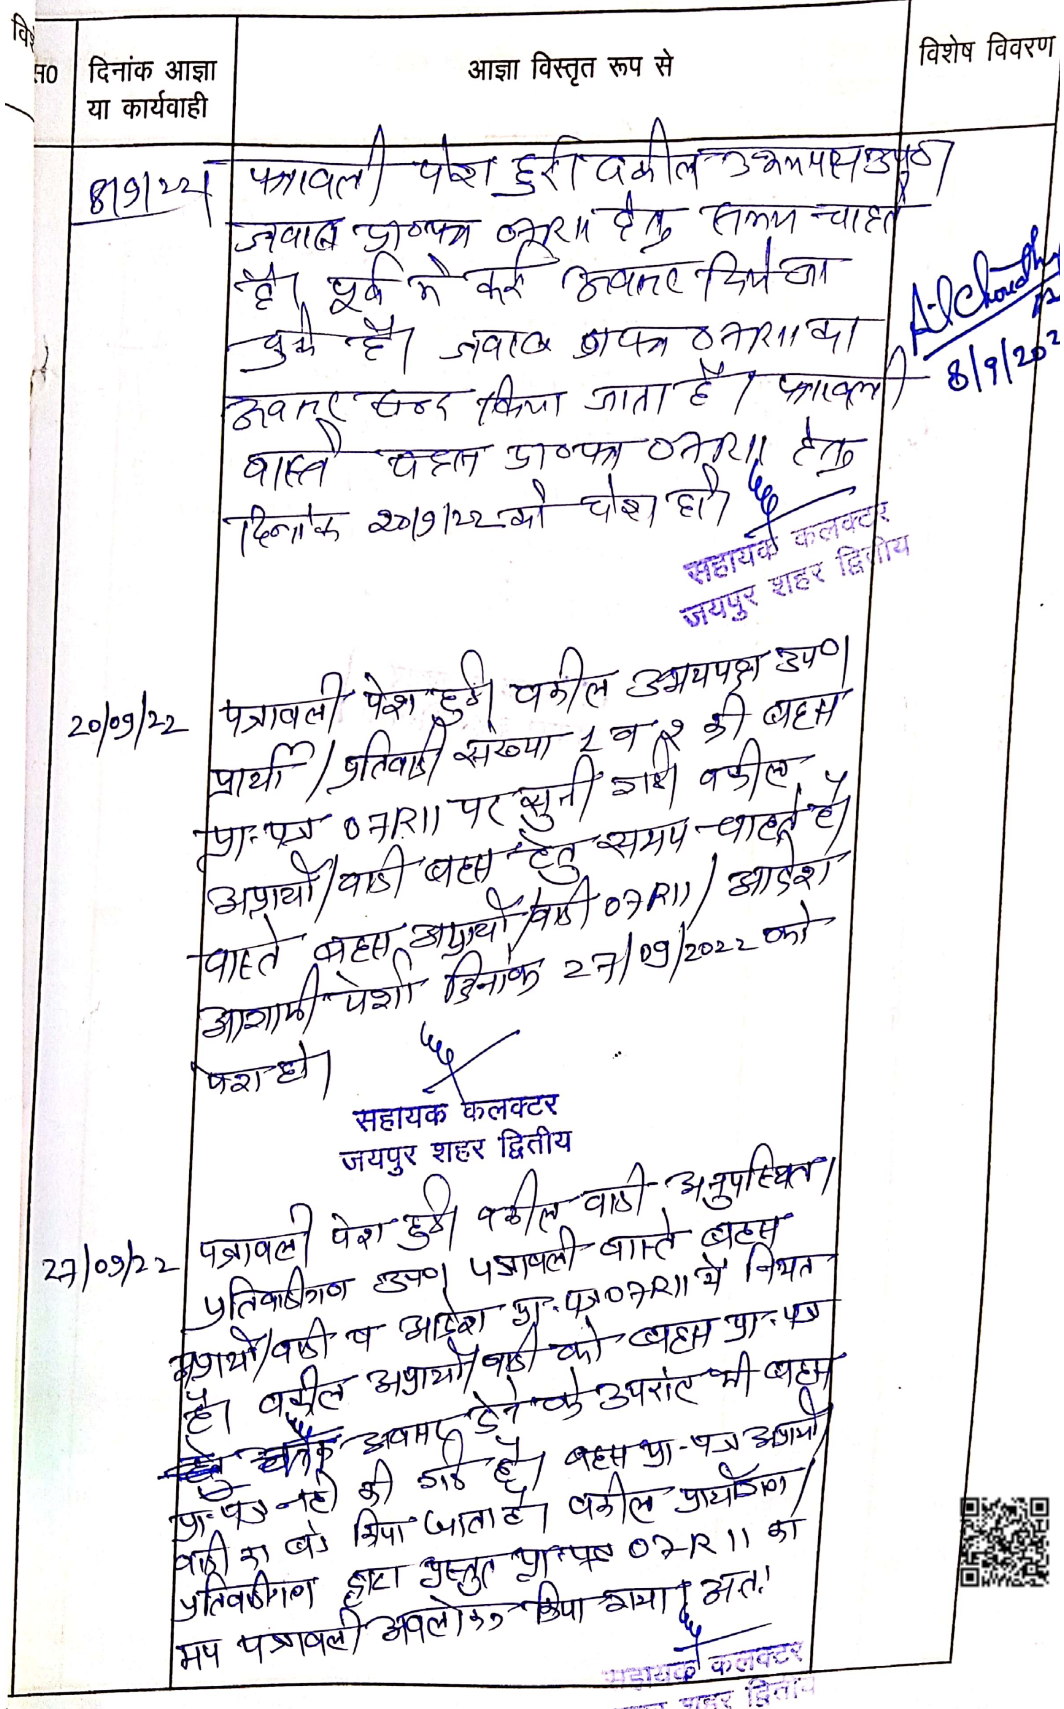 सं0
दिनांक आज्ञा
या कार्यवाही
आज्ञा विस्तृत रूप से
विशेष विवरण
8/9/22
पत्रावली पेश हुई। वकील उभयपक्ष उप0।
जवाब प्रा0पत्र 07R11 हेतु समय चाहते
है। पूर्व में कई अवसर दिये जा
चुके है। जवाब प्रा पत्र 07R11 का
अवसर बन्द किया जाता है। पत्रावली
वास्ते बहस प्रा0पत्र 07R11 हेतु
दिनांक 20/9/22 को पेश हो।
8/9/202
सहायक कलक्टर
जयपुर शहर द्वितीय
20/09/22
पत्रावली पेश हुई। वकील उभयपक्ष उप0।
प्रार्थी/प्रतिवादी संख्या 1 व 2 की बहस
प्रा.पत्र 07R11 पर सुनी गई। वकील
अप्रार्थी/वादी बहस हेतु समय चाहते है।
वास्ते बहस अप्रार्थी/वादी 07R11/आदेश
आगामी पेशी दिनांक 27/09/2022 को
पेश हो।
सहायक कलक्टर
जयपुर शहर द्वितीय
27/09/22
पत्रावली पेश हुई। वकील वादी अनुपस्थित।
प्रतिवादीगण उप0। पत्रावली वास्ते बहस
अप्रार्थी/वादी व आदेश प्रा.पत्र 07R11 में नियत
है। वकील अप्रार्थी/वादी को बहस प्रा.पत्र
अवसर देने के उपरांत भी बहस
प्रा.पत्र नही की गई है। बहस प्रा.पत्र अप्रार्थी/
वादी का बंद किया जाता है। वकील प्रार्थीगण/
प्रतिवादीगण द्वारा प्रस्तुत प्रा.पत्र 07R11 का
मय पत्रावली अवलोकन किया गया। अतः
सहायक कलक्टर
शहर द्वितीय